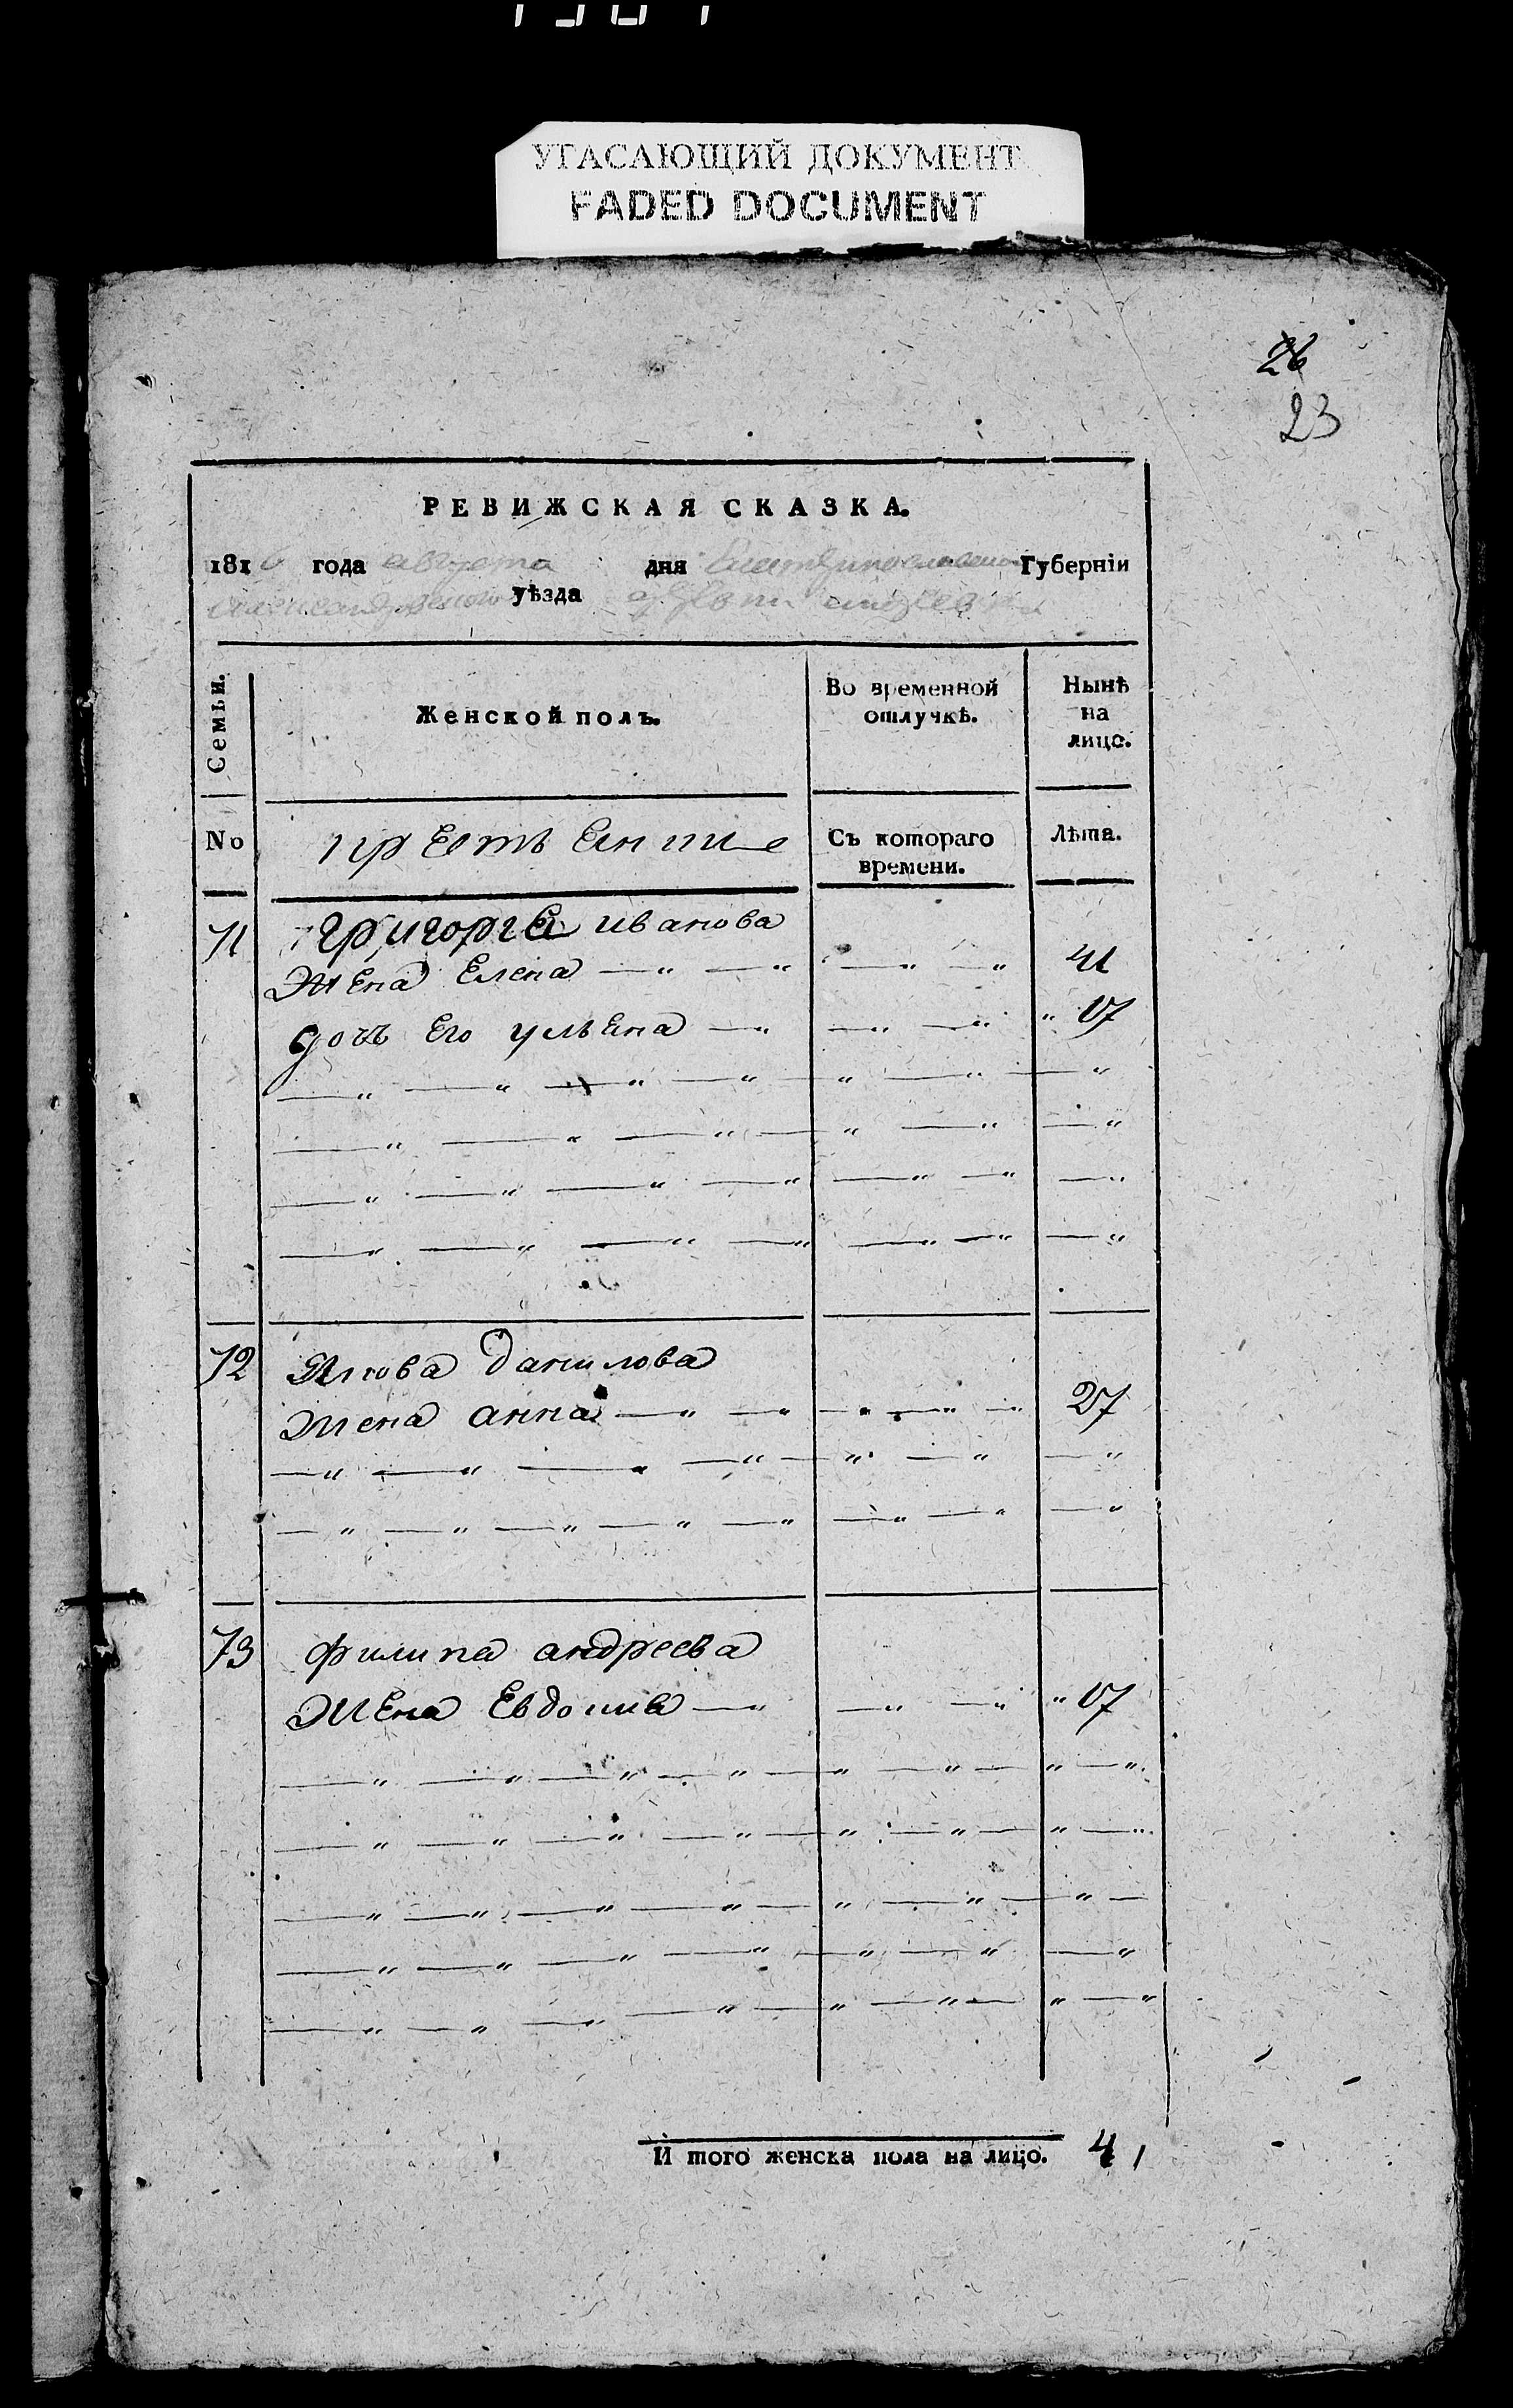 УГАСАЮЩИЙ ДОКУМЕНТ
FADED DOCUMENT
26
23
РЕВИЖСКАЯ СКАЗКА.
1816 года августа дня Екатеринославской Губерніи
Александровскаго уѣзда
Семьи.
Женской полъ.
Во временной отлучкѣ.
Ныне на лицо.
No
крестьянин
Съ котораго времени.
Лѣта.
71 григорія иванова
жена Елена — „ — „ — „ — „ 41
дочь Его ульяна — „ — „ — „ „ 17
72 Якова данилова
жена анна — „ — „ — „ — „ — „ 27
73 филипа андреева
жена Евдокия — „ — „ — „ „ 17
И того женска пола на лицо. 4